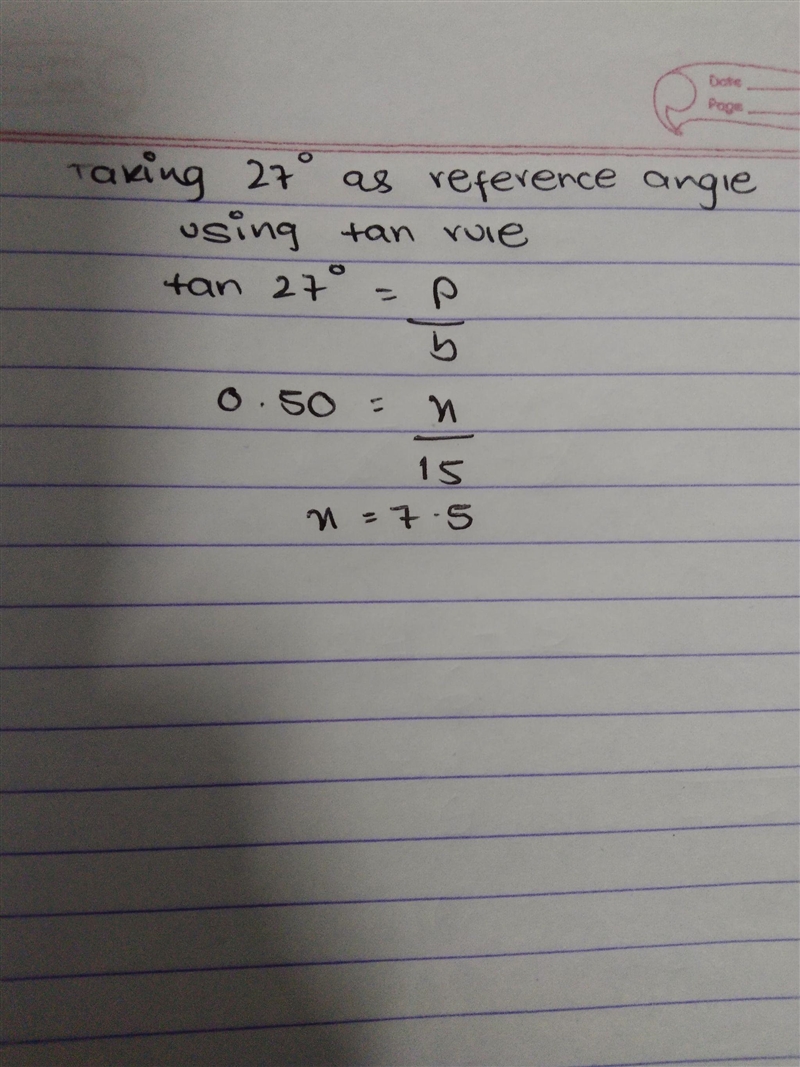 Date
Page
Taking 27° as reference angle
using tan rule
tan 27° = p
b
0.50 = x
15
x = 7.5